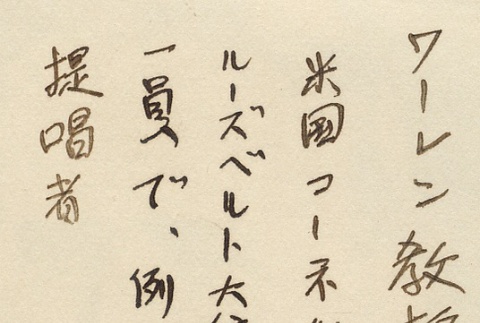 ワーレン教
米国コーネ
ルーズベルト大
一員で、例
提唱者